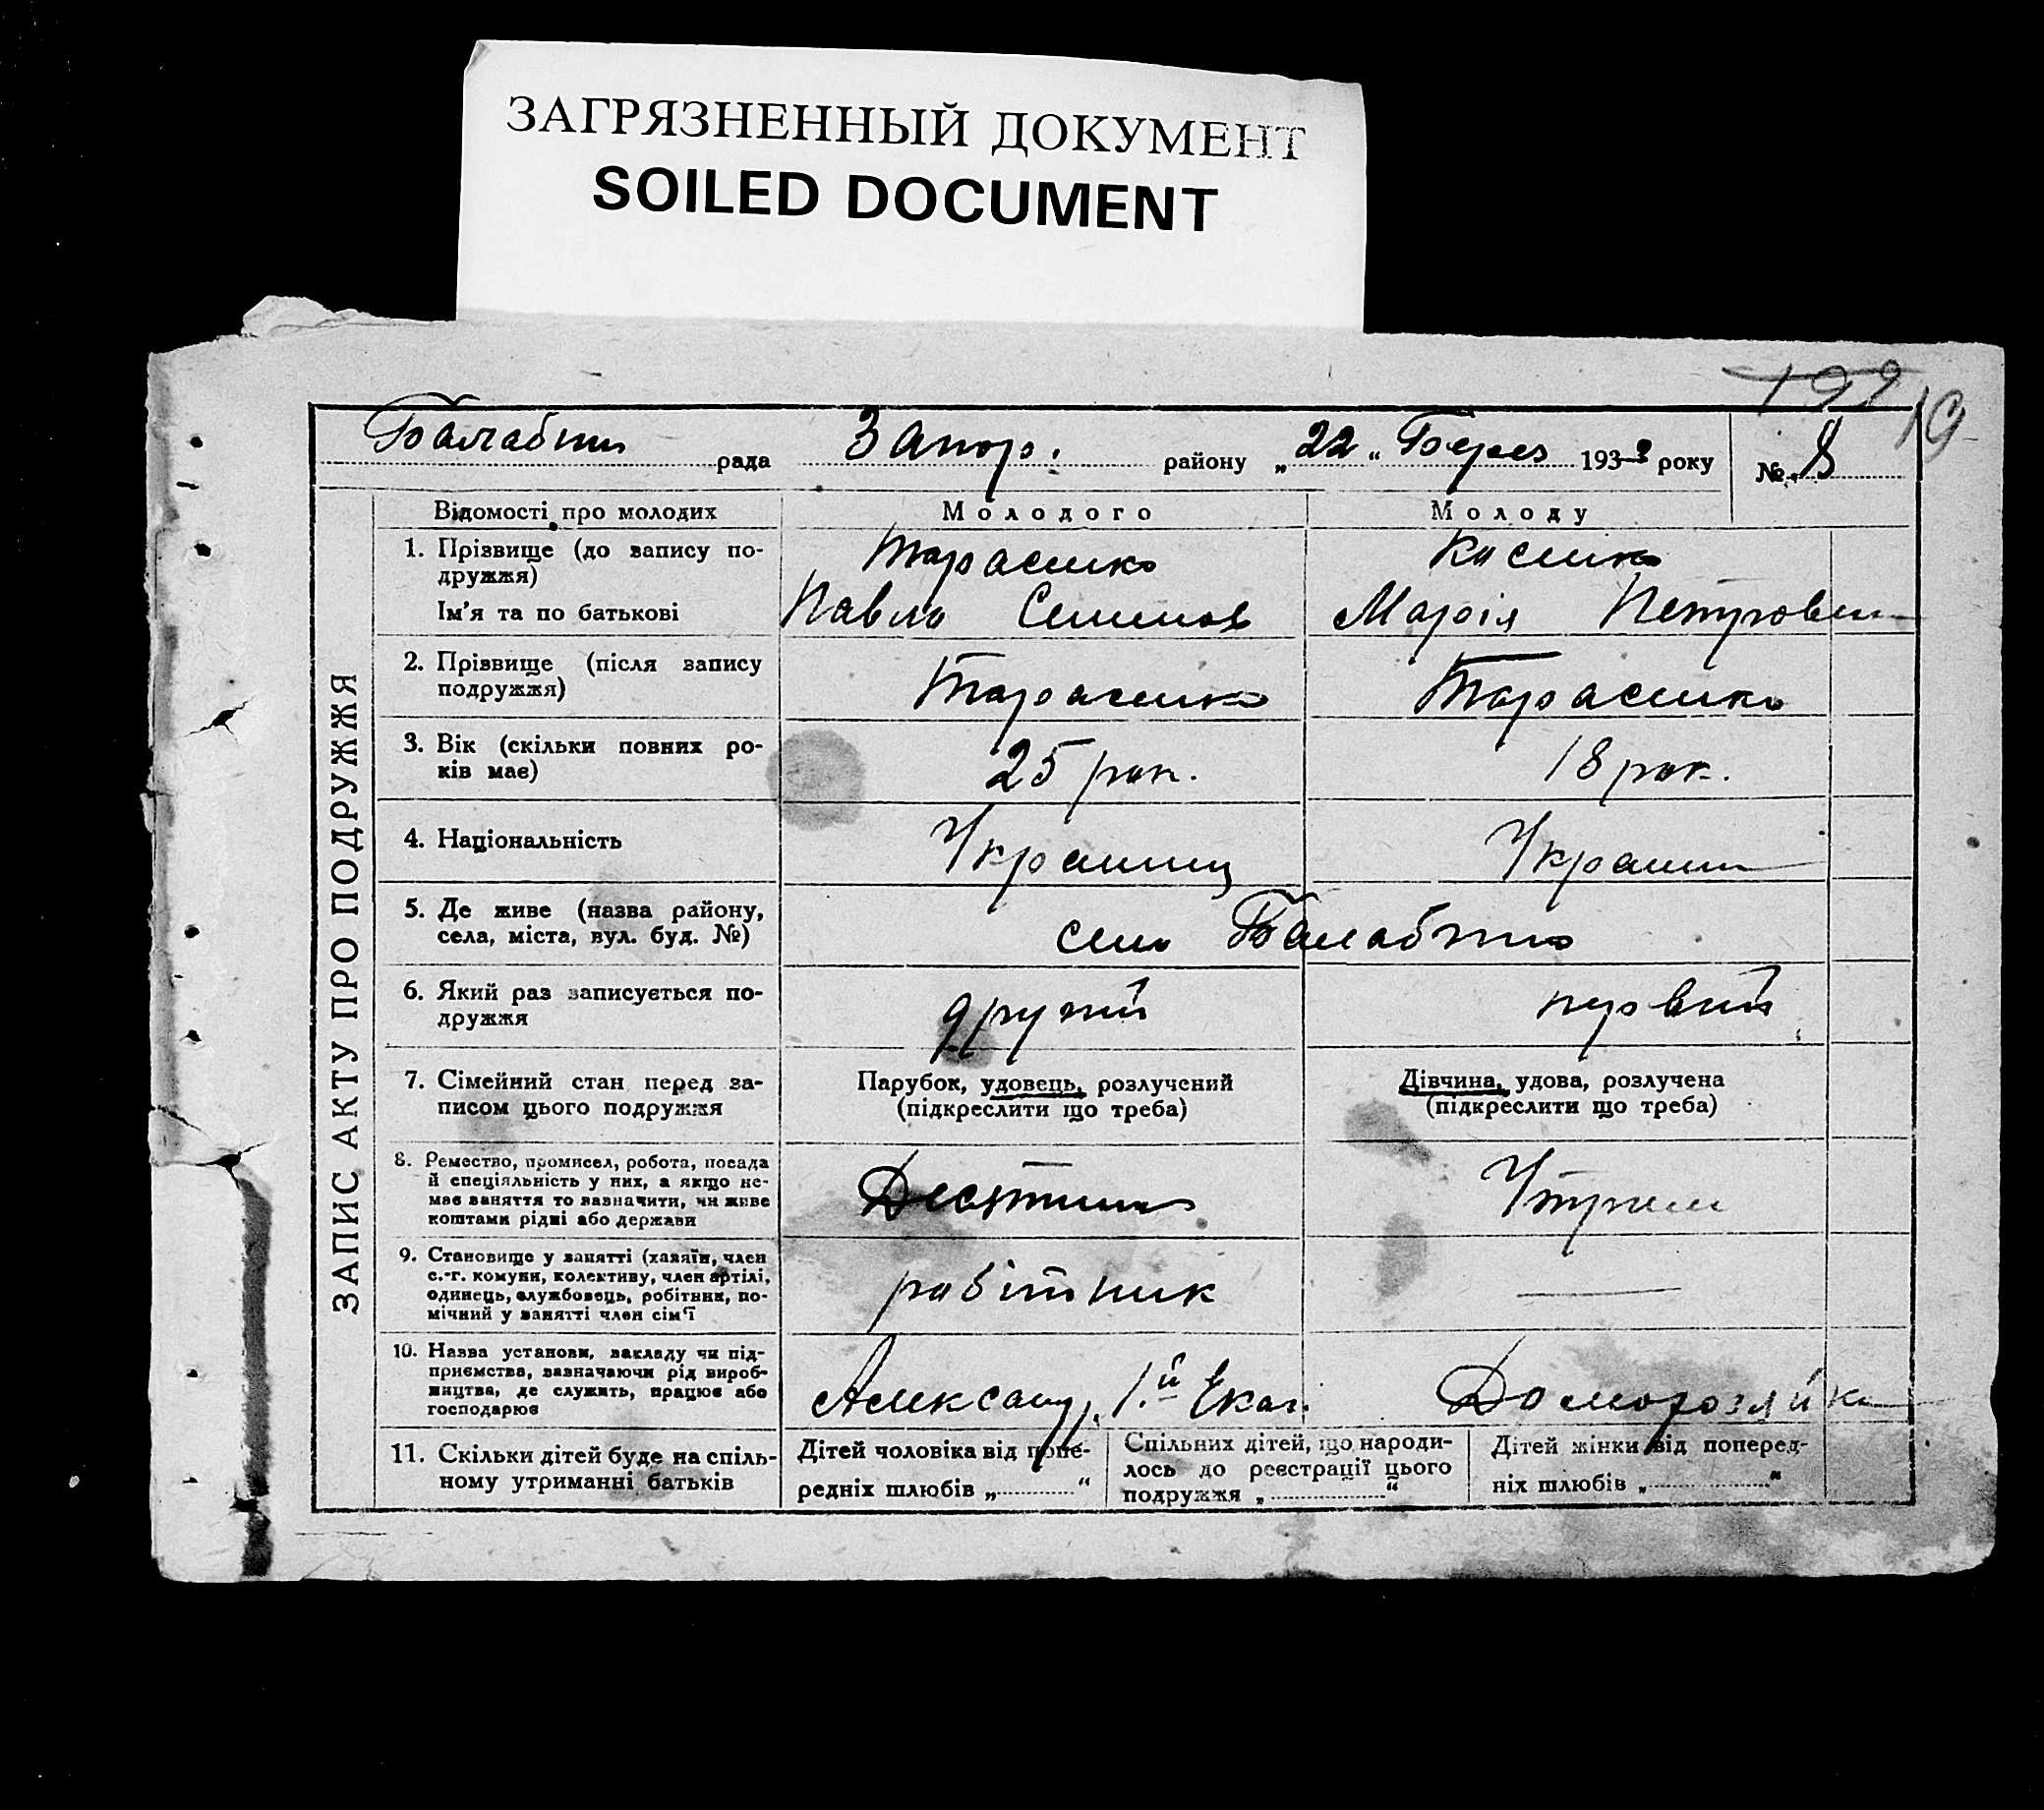 ЗАГРЯЗНЕННЫЙ ДОКУМЕНТ
SOILED DOCUMENT
199 19
Балабин рада Запор. району „22“ Берез 1933 року № 8
ЗАПИС АКТУ ПРО ПОДРУЖЖЯ
Відомості про молодих Молодого Молоду
1. Прізвище (до запису по- Тарасенко Касенко
дружжя)
Ім'я та по батькові Павло Семенов Марія Петровна
2. Прізвище (після запису Тарасенко Тарасенко
подружжя)
3. Вік (скільки повних ро- 25 рок. 18 рок.
ків має)
4. Національність Украинец Украин
5. Де живе (назва району, село Балабино
села, міста, вул. буд. №)
6. Який раз записується по- другий первий
дружжя
7. Сімейний стан перед за- Парубок, удовець, розлучений Дівчина, удова, розлучена
писом цього подружжя (підкреслити що треба) (підкреслити що треба)
8. Ремество, промисел, робота, посада
й спеціяльність у них, а якщо не- Десятник Утрим
має заняття то вазначити, чи живе
коштами рідні або держави
9. Становище у занятті (хазяїн, член
с.-г. комуни, колективу, член артілі, робітник —
одинець, службовець, робітник, по-
мічний у занятті член сім'ї
10. Назва установи, закладу чи під-
приємства, вазначаючи рід вироб- Александр. 1.й Екат.
ництва, де служить, працює або
господарює
11. Скільки дітей буде на спіль- Дітей чоловіка від попе- Спільних дітей, що народи- Дітей жінки від поперед-
ному утриманні батьків редніх шлюбів „ “ лось до реєстрації цього ніх шлюбів „ “
подружжя „ “